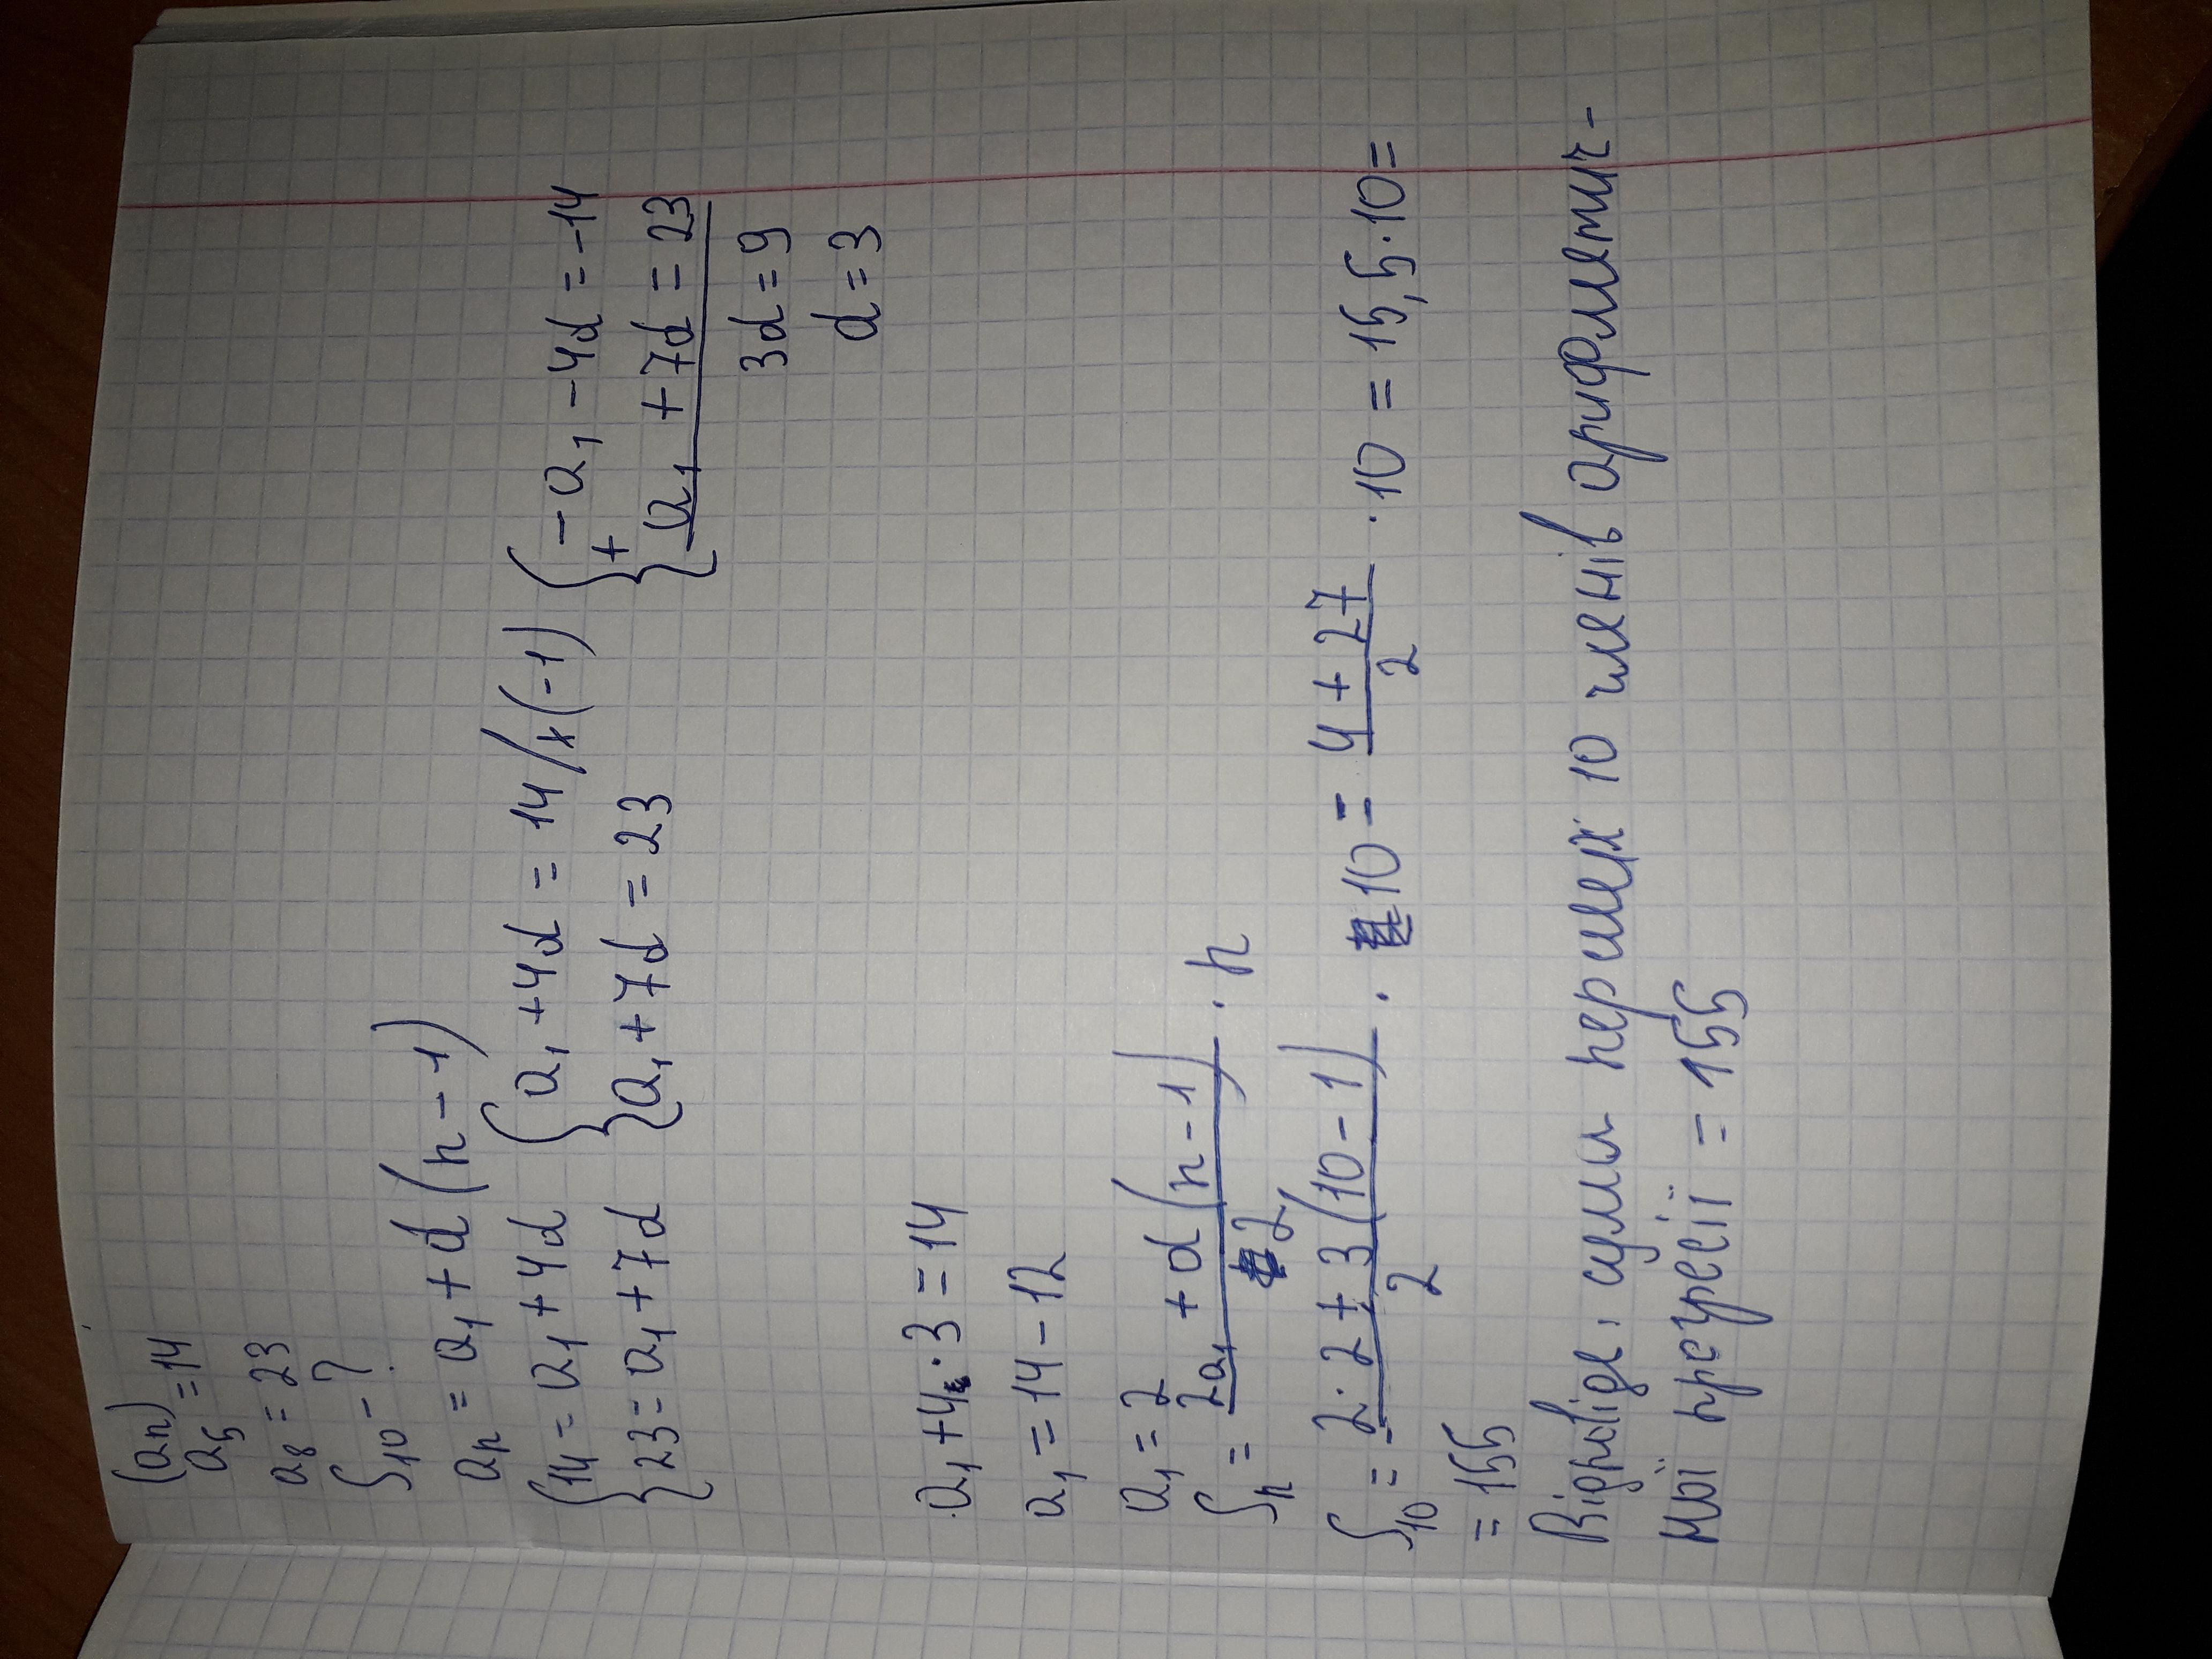 (aₙ)
a₅ = 14
a₈ = 23
S₁₀ - ?
aₙ = a₁ + d (n - 1)
{14 = a₁ + 4d {a₁ + 4d = 14 /x(-1) {-a₁ - 4d = -14
{23 = a₁ + 7d {a₁ + 7d = 23 + {a₁ + 7d = 23
3d = 9
d = 3
a₁ + 4 · 3 = 14
a₁ = 14 - 12
a₁ = 2
Sₙ = (2a₁ + d(n - 1))/2 · n
S₁₀ = (2 · 2 + 3(10 - 1))/2 · 10 = (4 + 27)/2 · 10 = 15,5 · 10 =
= 155
Відповідь, сума перших 10 членів арифметич-
ної прогресії = 155